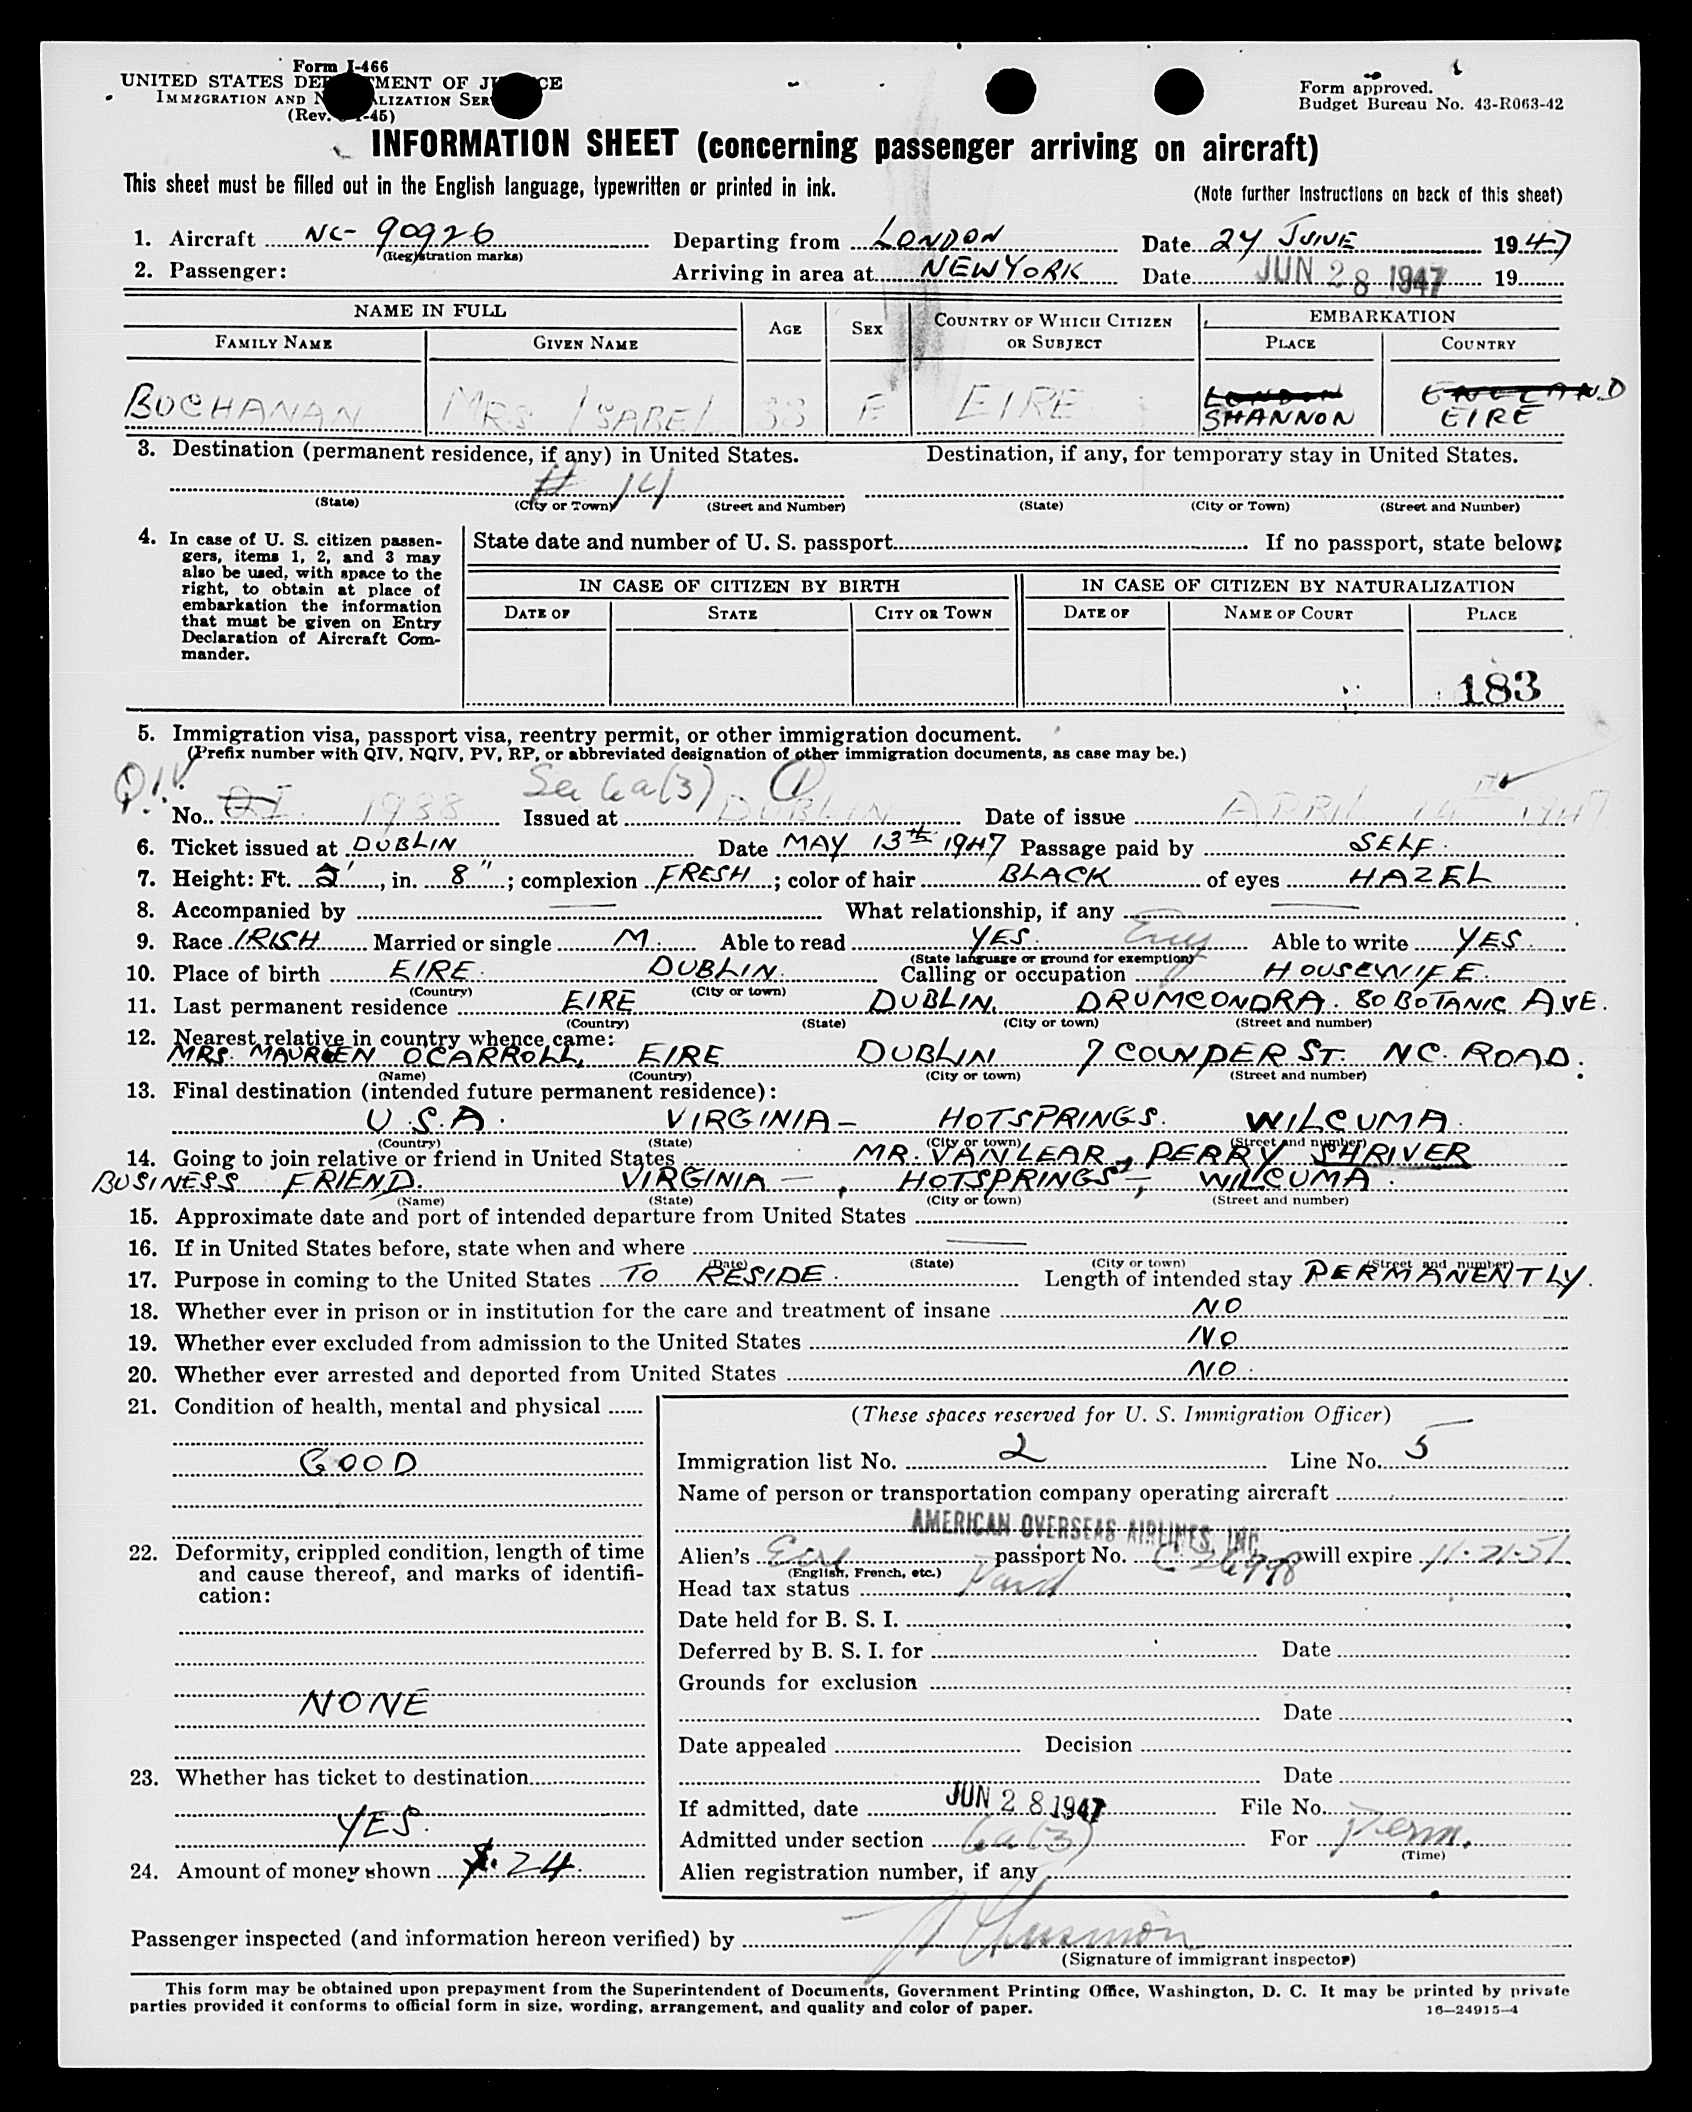 Form I-466
UNITED STATES DEPARTMENT OF JUSTICE
IMMIGRATION AND NATURALIZATION SERVICE
(Rev. -45)
Form approved.
Budget Bureau No. 43-R063-42
INFORMATION SHEET (concerning passenger arriving on aircraft)
This sheet must be filled out in the English language, typewritten or printed in ink.
(Note further instructions on back of this sheet)
1. Aircraft NC- 90926 Departing from LONDON Date 27 JUNE 1947
(Registration marks)
2. Passenger: Arriving in area at NEW YORK Date JUN 28 1947 19
NAME IN FULL AGE SEX COUNTRY OF WHICH CITIZEN OR SUBJECT EMBARKATION
FAMILY NAME GIVEN NAME PLACE COUNTRY
LONDON ENGLAND
BUCHANAN MRS ISABEL 38 F EIRE SHANNON EIRE
3. Destination (permanent residence, if any) in United States. Destination, if any, for temporary stay in United States.
# 14
(State) (City or Town) (Street and Number) (State) (City or Town) (Street and Number)
4. In case of U. S. citizen passengers, items 1, 2, and 3 may also be used, with space to the right, to obtain at place of embarkation the information that must be given on Entry Declaration of Aircraft Commander.
State date and number of U. S. passport If no passport, state below:
IN CASE OF CITIZEN BY BIRTH IN CASE OF CITIZEN BY NATURALIZATION
DATE OF STATE CITY OR TOWN DATE OF NAME OF COURT PLACE
183
5. Immigration visa, passport visa, reentry permit, or other immigration document.
(Prefix number with QIV, NQIV, PV, RP, or abbreviated designation of other immigration documents, as case may be.)
QIV See 6a(3) 1
No. QI 1938 Issued at DUBLIN Date of issue APRIL 14TH 1947
6. Ticket issued at DUBLIN Date MAY 13th 1947 Passage paid by SELF.
7. Height: Ft. 5', in. 8"; complexion FRESH; color of hair BLACK of eyes HAZEL
8. Accompanied by — What relationship, if any —
9. Race IRISH Married or single M. Able to read YES. Eng Able to write YES.
(State language or ground for exemption)
10. Place of birth EIRE. DUBLIN. Calling or occupation HOUSEWIFE.
(Country) (City or town)
11. Last permanent residence EIRE DUBLIN, DRUMCONDRA. 80 BOTANIC AVE.
(Country) (State) (City or town) (Street and number)
12. Nearest relative in country whence came:
MRS. MAUREEN OCARROLL, EIRE DUBLIN 7 COWPER ST. NC. ROAD.
(Name) (Country) (City or town) (Street and number)
13. Final destination (intended future permanent residence):
U.S.A. VIRGINIA- HOTSPRINGS. WILCUMA.
(Country) (State) (City or town) (Street and number)
14. Going to join relative or friend in United States MR. VANLEAR, PERRY SHRIVER
BUSINESS FRIEND. VIRGINIA —, HOTSPRINGS —, WILCUMA.
(Name) (State) (City or town) (Street and number)
15. Approximate date and port of intended departure from United States
16. If in United States before, state when and where —
(Date) (State) (City or town) (Street and number)
17. Purpose in coming to the United States TO RESIDE. Length of intended stay PERMANENTLY.
18. Whether ever in prison or in institution for the care and treatment of insane NO
19. Whether ever excluded from admission to the United States NO
20. Whether ever arrested and deported from United States NO.
21. Condition of health, mental and physical
GOOD
22. Deformity, crippled condition, length of time and cause thereof, and marks of identification:
NONE
23. Whether has ticket to destination
YES.
24. Amount of money shown $. 24.
(These spaces reserved for U. S. Immigration Officer)
Immigration list No. 2 Line No. 5
Name of person or transportation company operating aircraft
AMERICAN OVERSEAS AIRLINES, INC.
Alien's passport No. will expire 11-21-51
(English, French, etc.)
Head tax status Paid
Date held for B. S. I.
Deferred by B. S. I. for Date
Grounds for exclusion
Date
Date appealed Decision
Date
If admitted, date JUN 28 1947 File No.
Admitted under section 6a(3) For Perm.
(Time)
Alien registration number, if any
Passenger inspected (and information hereon verified) by
(Signature of immigrant inspector)
This form may be obtained upon prepayment from the Superintendent of Documents, Government Printing Office, Washington, D. C. It may be printed by private
parties provided it conforms to official form in size, wording, arrangement, and quality and color of paper.
16—24915-4